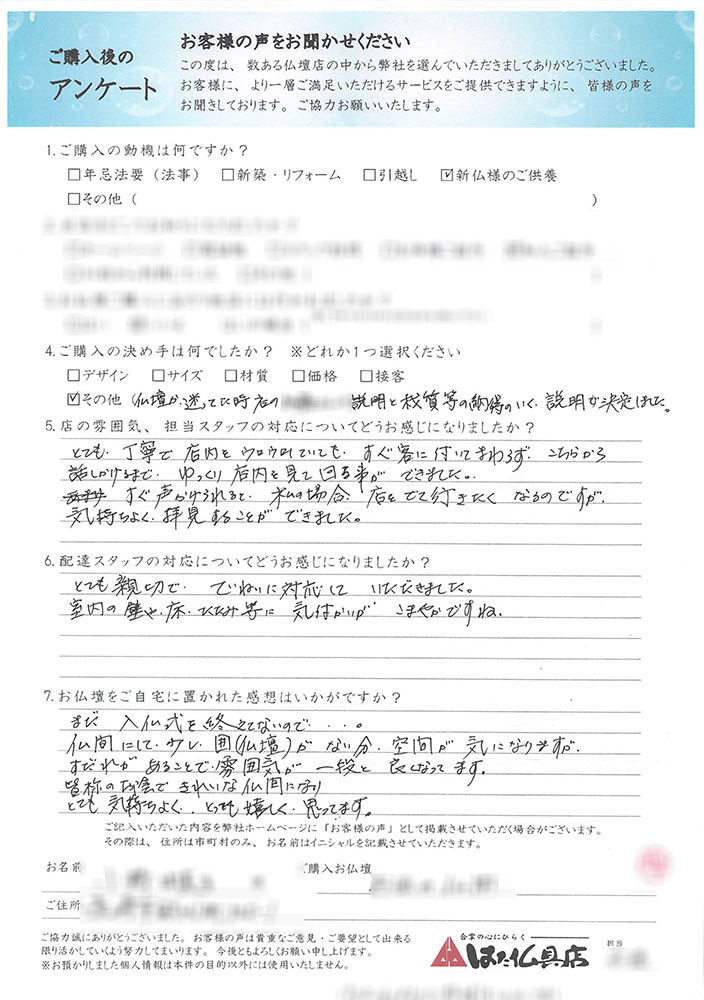 ご購入後の
アンケート
お客様の声をお聞かせください
この度は、数ある仏壇店の中から弊社を選んでいただきましてありがとうございました。
お客様に、より一層ご満足いただけるサービスをご提供できますように、皆様の声を
お聞きしております。ご協力お願いいたします。
1.ご購入の動機は何ですか?
□年忌法要(法事) □新築・リフォーム □引越し ☑新仏様のご供養
□その他( )
4.ご購入の決め手は何でしたか? ※どれか1つ選択ください
□デザイン □サイズ □材質 □価格 □接客
☑その他(仏壇か迷ってた時店の 説明と材質等の納得のいく、説明が決定ました。
5.店の雰囲気、担当スタッフの対応についてどうお感じになりましたか?
とても、丁寧で店内をウロウロしていても、すぐ客に付いてまわらず、こちらから
話しかけるまで、ゆっくり店内を見て回る事ができました。
すぐ声かけられると、私の場合、店をでて行きたくなるのですが、
気持ちよく、拝見することができました。
6.配達スタッフの対応についてどうお感じになりましたか?
とても親切で、ていねいに対応して いただきました。
室内の 床、たたみ等に 気付かいが こまやかですね。
7.お仏壇をご自宅に置かれた感想はいかがですか?
まだ 入仏式を終えてないので・・・。
仏間にして、少し、囲(仏壇)がない分、空間が気になりますが、
すだれがあることで、雰囲気が一段と良くなってます。
皆称の でされいな仏間になり
とても気持ちよく、とても嬉しく思ってます。
ご記入いただいた内容を弊社ホームページに「お客様の声」として掲載させていただく場合がございます。
その際は、住所は市町村のみ、お名前はイニシャルを記載させていただきます。
お名前 ご購入お仏壇
ご住所
ご協力誠にありがとうございました。お客様の声は貴重なご意見・ご要望として出来る
限り活かしていくよう努力してまいります。今後ともよろしくお願い申し上げます。
※お預かりしました個人情報は本件の目的以外には使用いたしません。
合掌の心にひらく
はた仏具店
担当